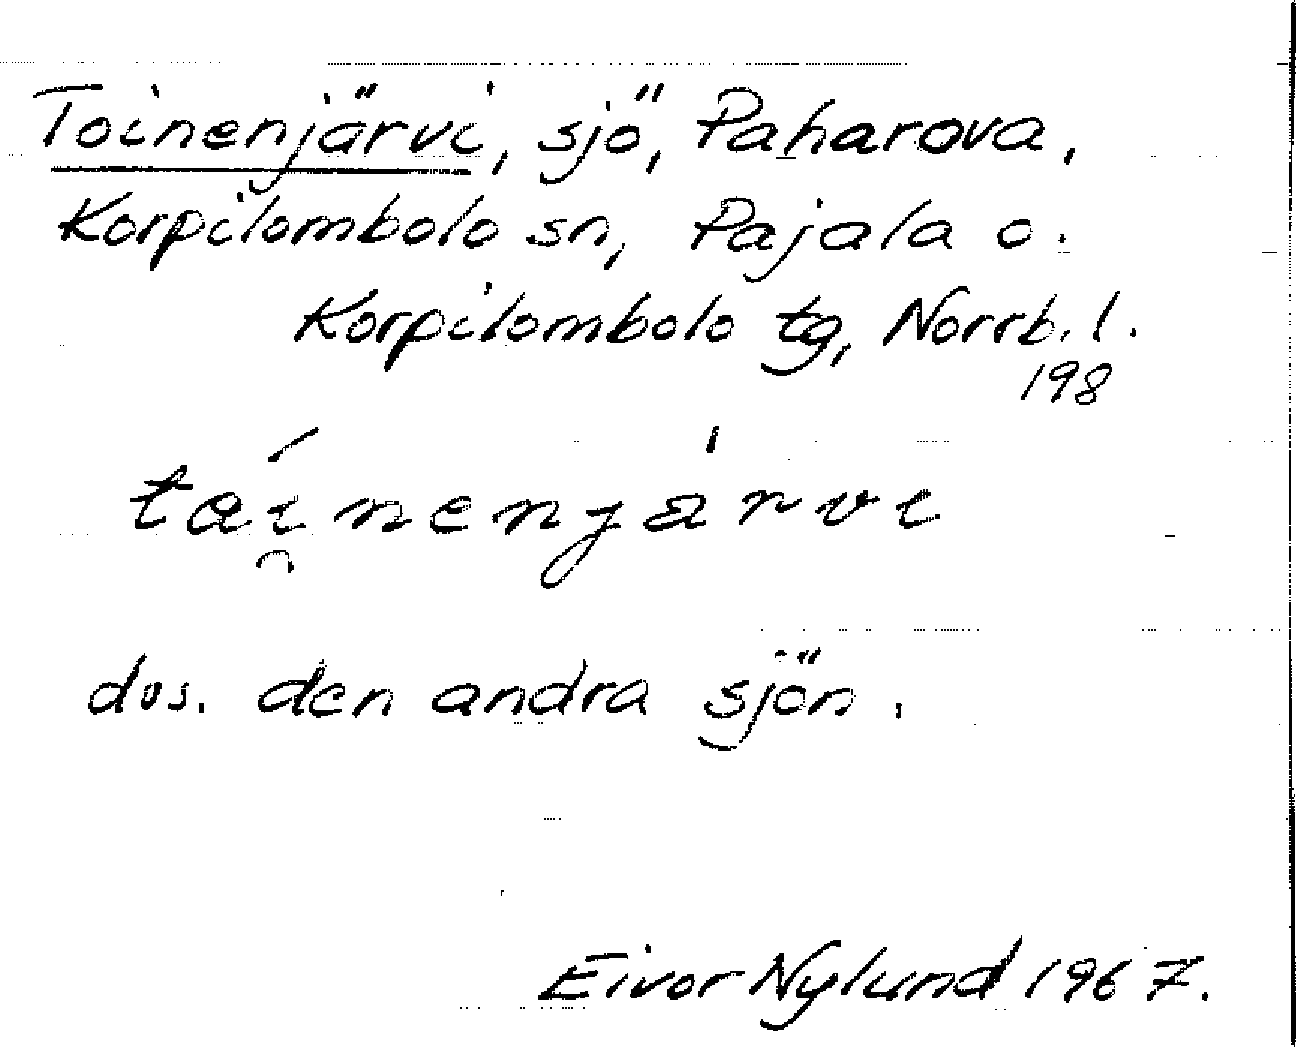 Toinenjärvi, sjö, Paharova,
Korpilombolo sn, Pajala o.
Korpilombolo tg, Norrb. l.
198
tái̯nenjàrvi
dvs. den andra sjön.
Eivor Nylund 1967.